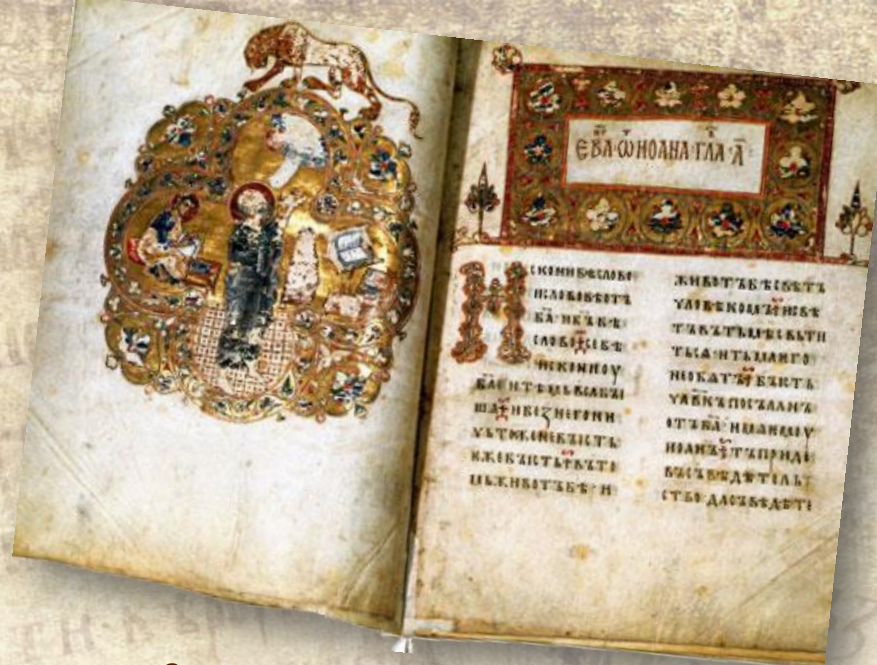 ЕВА·Ѿ ИОАНА·ГЛА·А҃
ИСКОНИБѢСЛОВО
ИСЛОВОБѢОТЪ
Б҃А·ИБ҃ЪБѢ
СЛОВО·СЕБѢ
ИСКОНИОУ
Б҃А·ИТѢМЬВЬСАБЫ
ША·ИБЕЗНЕГОНИ
ЧЬТОЖЕНЕБЫСТЬ·
ѤЖЕБЫСТЬ·ВЪТО
МЬЖИВОТЪБѢ·И
ЖИВОТЪБѢСВѢТЪ
ЧЛОВѢКОМЪ·ИСВѢ
ТЪВЪТЬМѢСВЬТИ
ТЬСѦ·ИТЬМАѤГО
НЕОБѦТЪ·БЫСТЬ
ЧЛ҃ВКЪПОСЪЛАНЪ
ОТЪБ҃А·ИМѦѤМОУ
ИОАНЪ·ТЪПРИДЕ
ВЪСЪВѢДѢТЕЛЬ
СТВО·ДАСЪВѢДѢТЕ